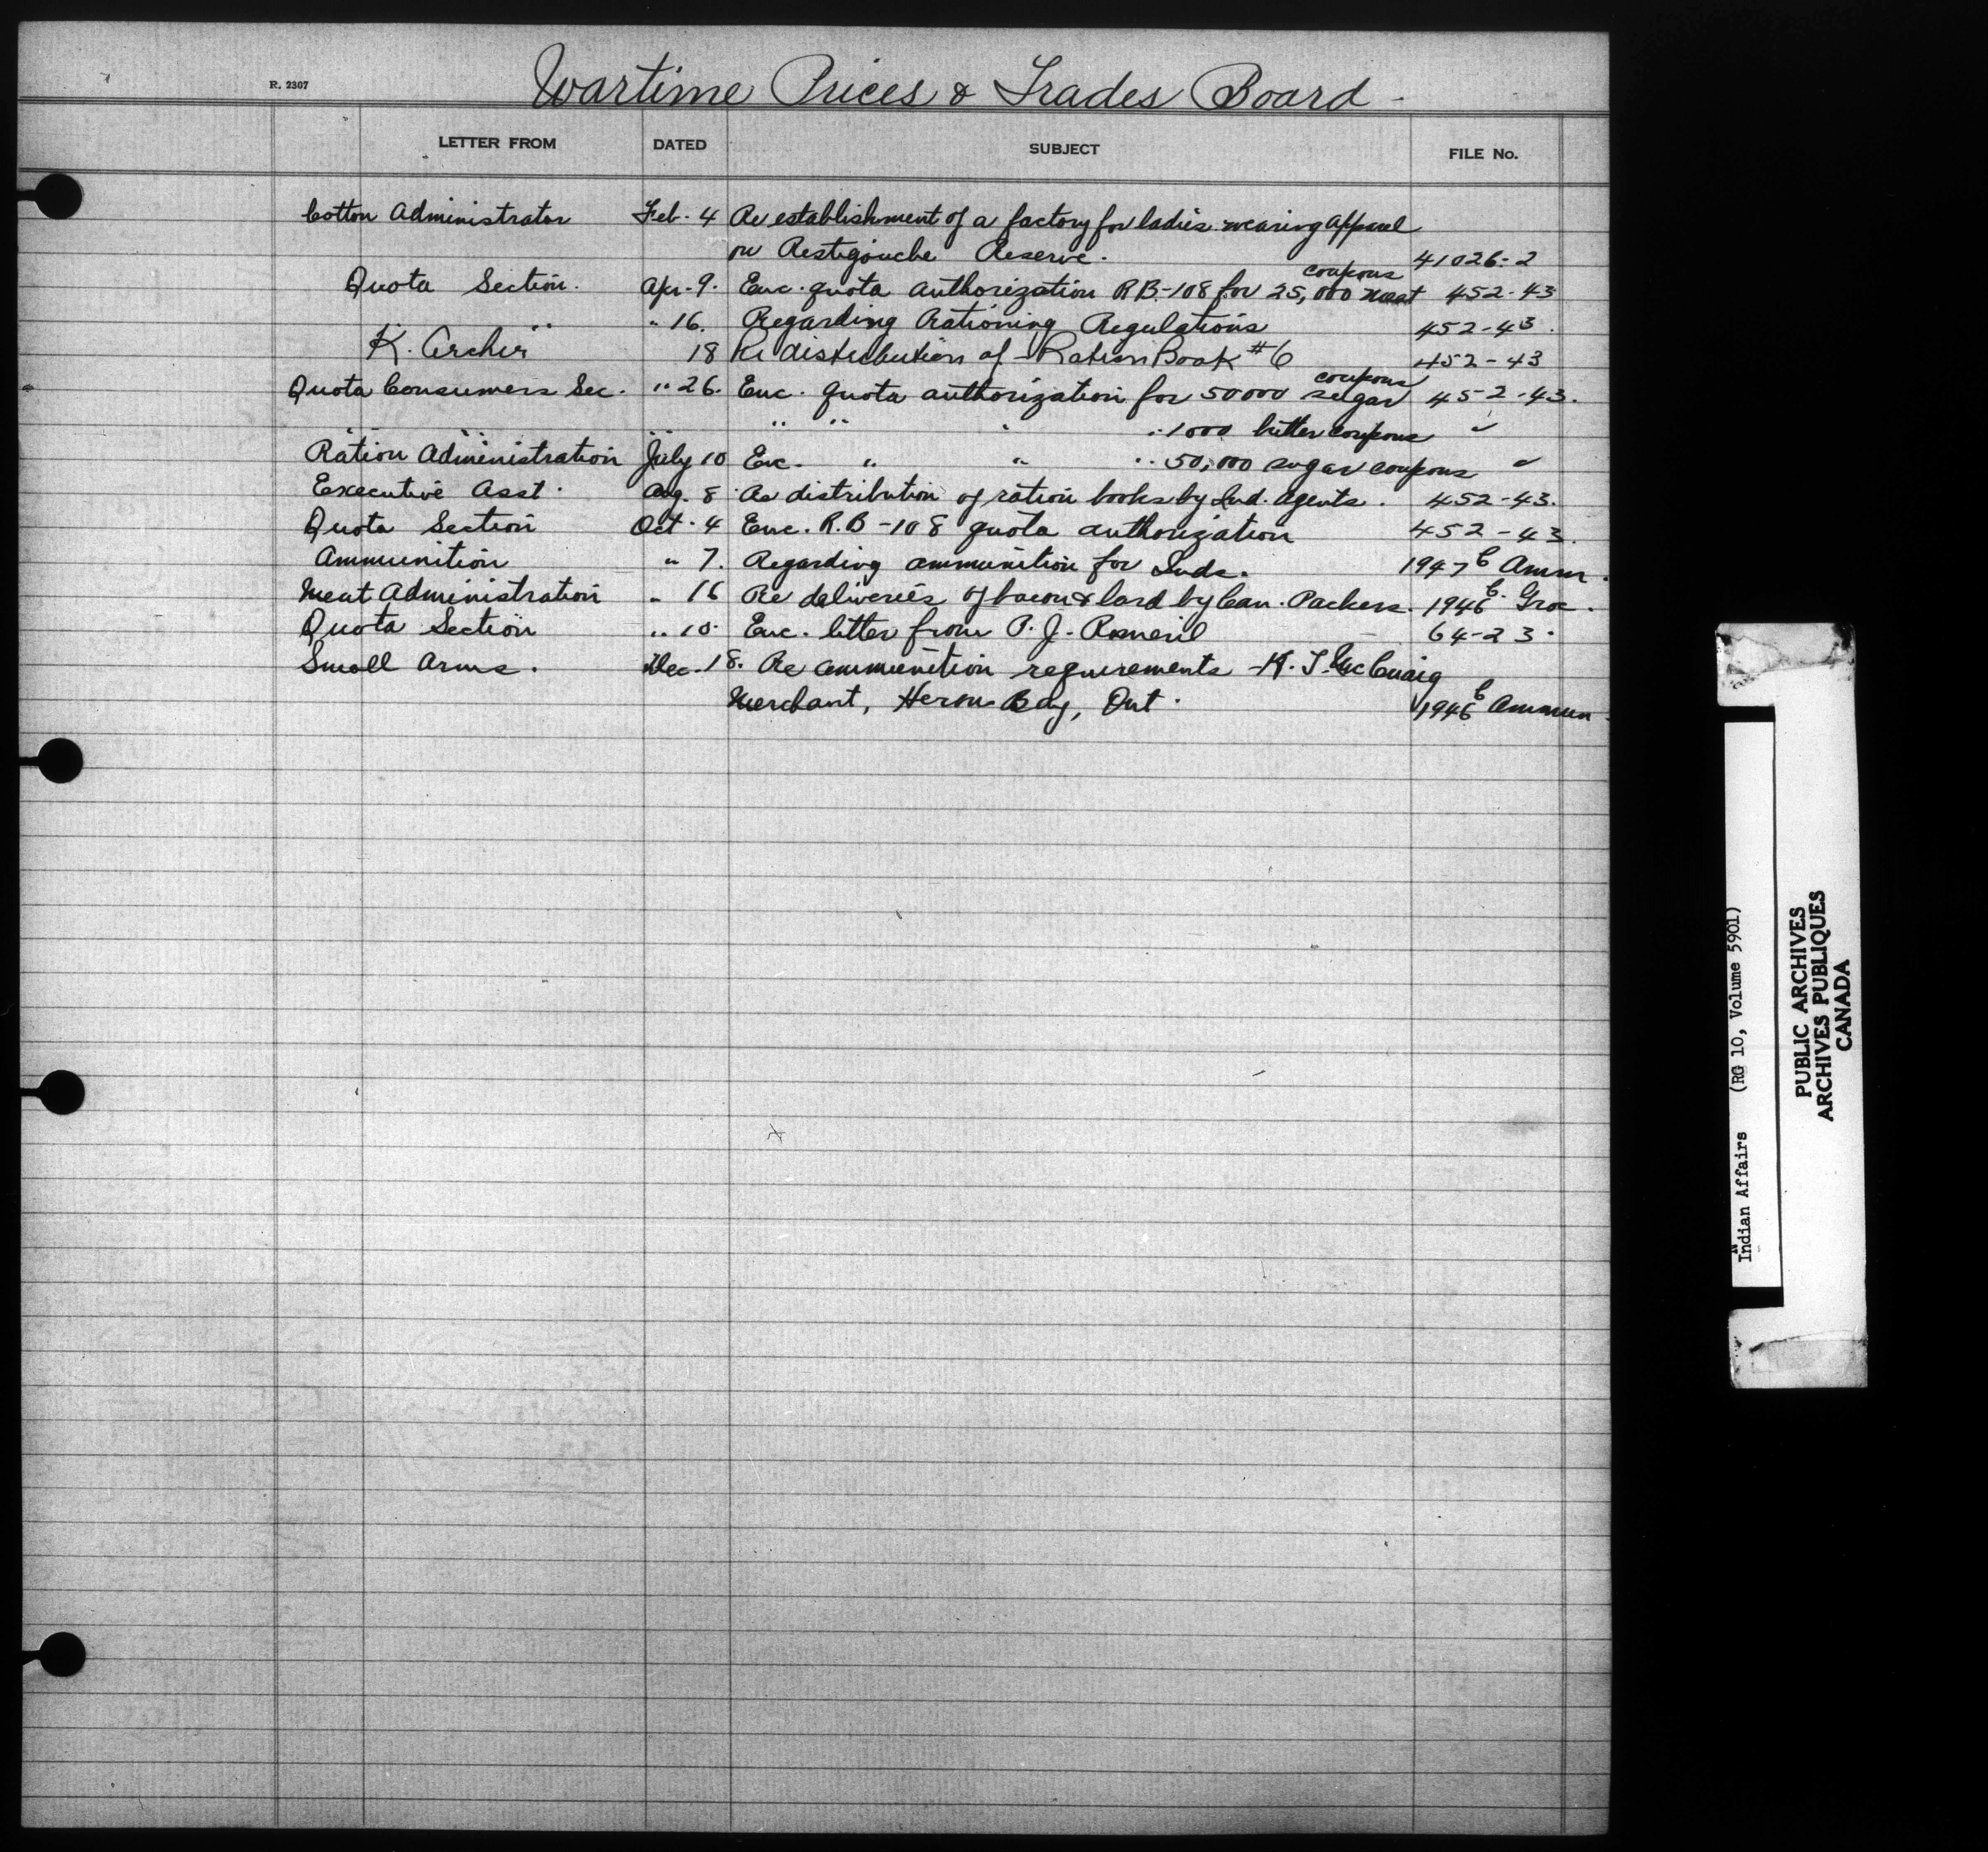 R. 2307
Wartime Prices & Trades Board -
LETTER FROM DATED SUBJECT FILE No.
Cotton Administrator Feb. 4 Re establishment of a factory for ladies wearing apparel
on Restigouche Reserve. 41026-2
Quota Section. Apr. 9. Enc. quota authorization RB-108 for 25,000 meat coupons 452-43
" " " 16. Regarding Rationing Regulations 452-43.
K. Archer 18 Re distribution of Ration Book #6 452-43
Quota Consumers Sec. " 26. Enc. quota authorization for 50000 sugar coupons 452-43.
" " " " " " " " 1000 butter coupons "
Ration Administration July 10 Enc. " " " 50,000 sugar coupons "
Executive Asst. Aug. 8 Re distribution of ration books by Ind. Agents. 452-43.
Quota Section Oct. 4 Enc. R.B-108 quota authorization 452-43.
Ammunition " 7. Regarding ammunition for Inds. 1947 C Amm.
Meat Administration " 16 Re deliveries of bacon & lard by Can. Packers. 1946 C. Groc.
Quota Section " 10. Enc. letter from P. J. Romeril 64-23.
Small Arms. Dec. 18. Re ammunition requirements - H. J. McCuaig
Merchant, Heron Bay, Ont. 1946 C Ammun.
Indian Affairs (RG 10, Volume 5901)
PUBLIC ARCHIVES
ARCHIVES PUBLIQUES
CANADA